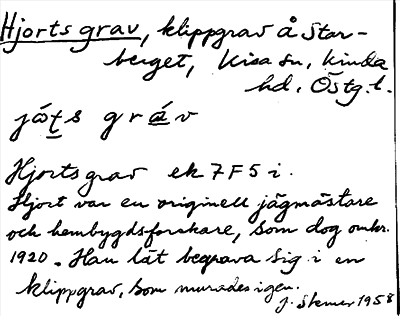 Hjorts grav, klippgrav å Stor-
berget, Kisa sn, Kinda
hd, Östg.l.
jo̊ţs gráv
Hjorts grav ek 7F5i.
Hjort var en originell jägmästare
och hembygdsforskare, som dog omkr.
1920. Han lät begrava sig i en
klippgrav, som murades igen.
J. Stemer 1958